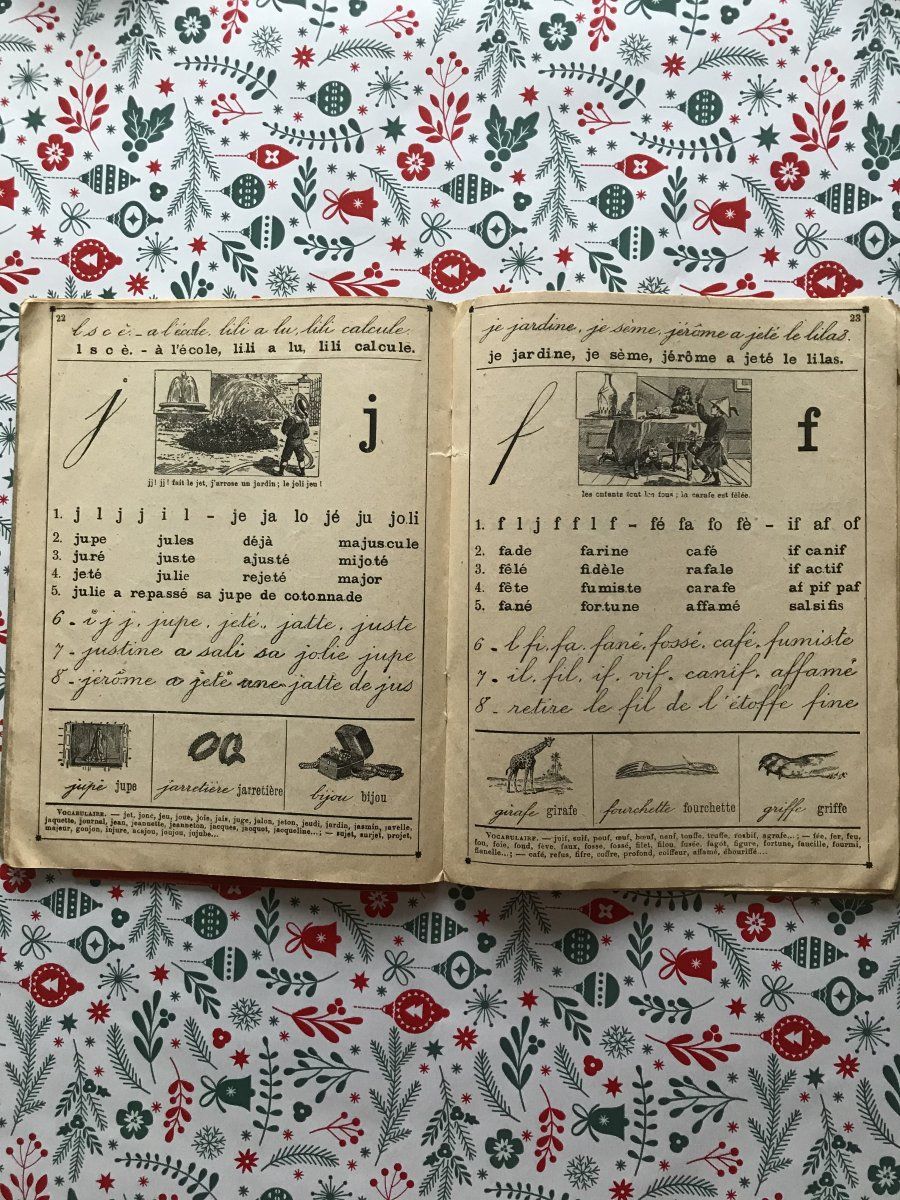 22
l s c è. - à l'école, lili a lu, lili calcule.
l s c è. - à l'école, lili a lu, lili calcule.
j j
jj! jj! fait le jet, j'arrose un jardin; le joli jeu!
1. j l j j i l – je ja lo jé ju joli
2. jupe jules déjà majuscule
3. juré juste ajusté mijoté
4. jeté julie rejeté major
5. julie a repassé sa jupe de cotonnade
6 - i j j, jupe, jeté, jatte, juste
7 - justine a sali sa jolie jupe
8 - jérôme a jeté une jatte de jus
jupe jupe jarretière jarretière bijou bijou
VOCABULAIRE. — jet, jonc, jeu, joue, joie, jais, juge, jalon, jeton, jeudi, jardin, jasmin, javelle,
jaquette, journal, jean, jeannette, jeanneton, jacques, jacquot, jacqueline...; — sujet, surjet, projet,
majeur, goujon, injure, acajou, joujou, jujube...
23
je jardine, je sème, jérôme a jeté le lilas.
je jardine, je sème, jérôme a jeté le lilas.
f f
les enfants font les fous; la carafe est fêlée.
1. f l j f f l f – fé fa fo fè – if af of
2. fade farine café if canif
3. fêlé fidèle rafale if actif
4. fête fumiste carafe af pif paf
5. fané fortune affamé salsifis
6 - l fi, fa, fané, fossé, café, fumiste
7 - il, fil, if, vif, canif, affamé
8 - retire le fil de l'étoffe fine
girafe girafe fourchette fourchette griffe griffe
VOCABULAIRE. — juif, suif, neuf, œuf, bœuf, nerf, touffe, truffe, rosbif, agrafe...; — fée, fer, feu,
fou, foie, fond, fève, faux, fosse, fossé, filet, filou, fusée, fagot, figure, fortune, faucille, fourmi,
flanelle...; — café, refus, fifre, coffre, profond, coiffeur, affamé, ébouriffé...